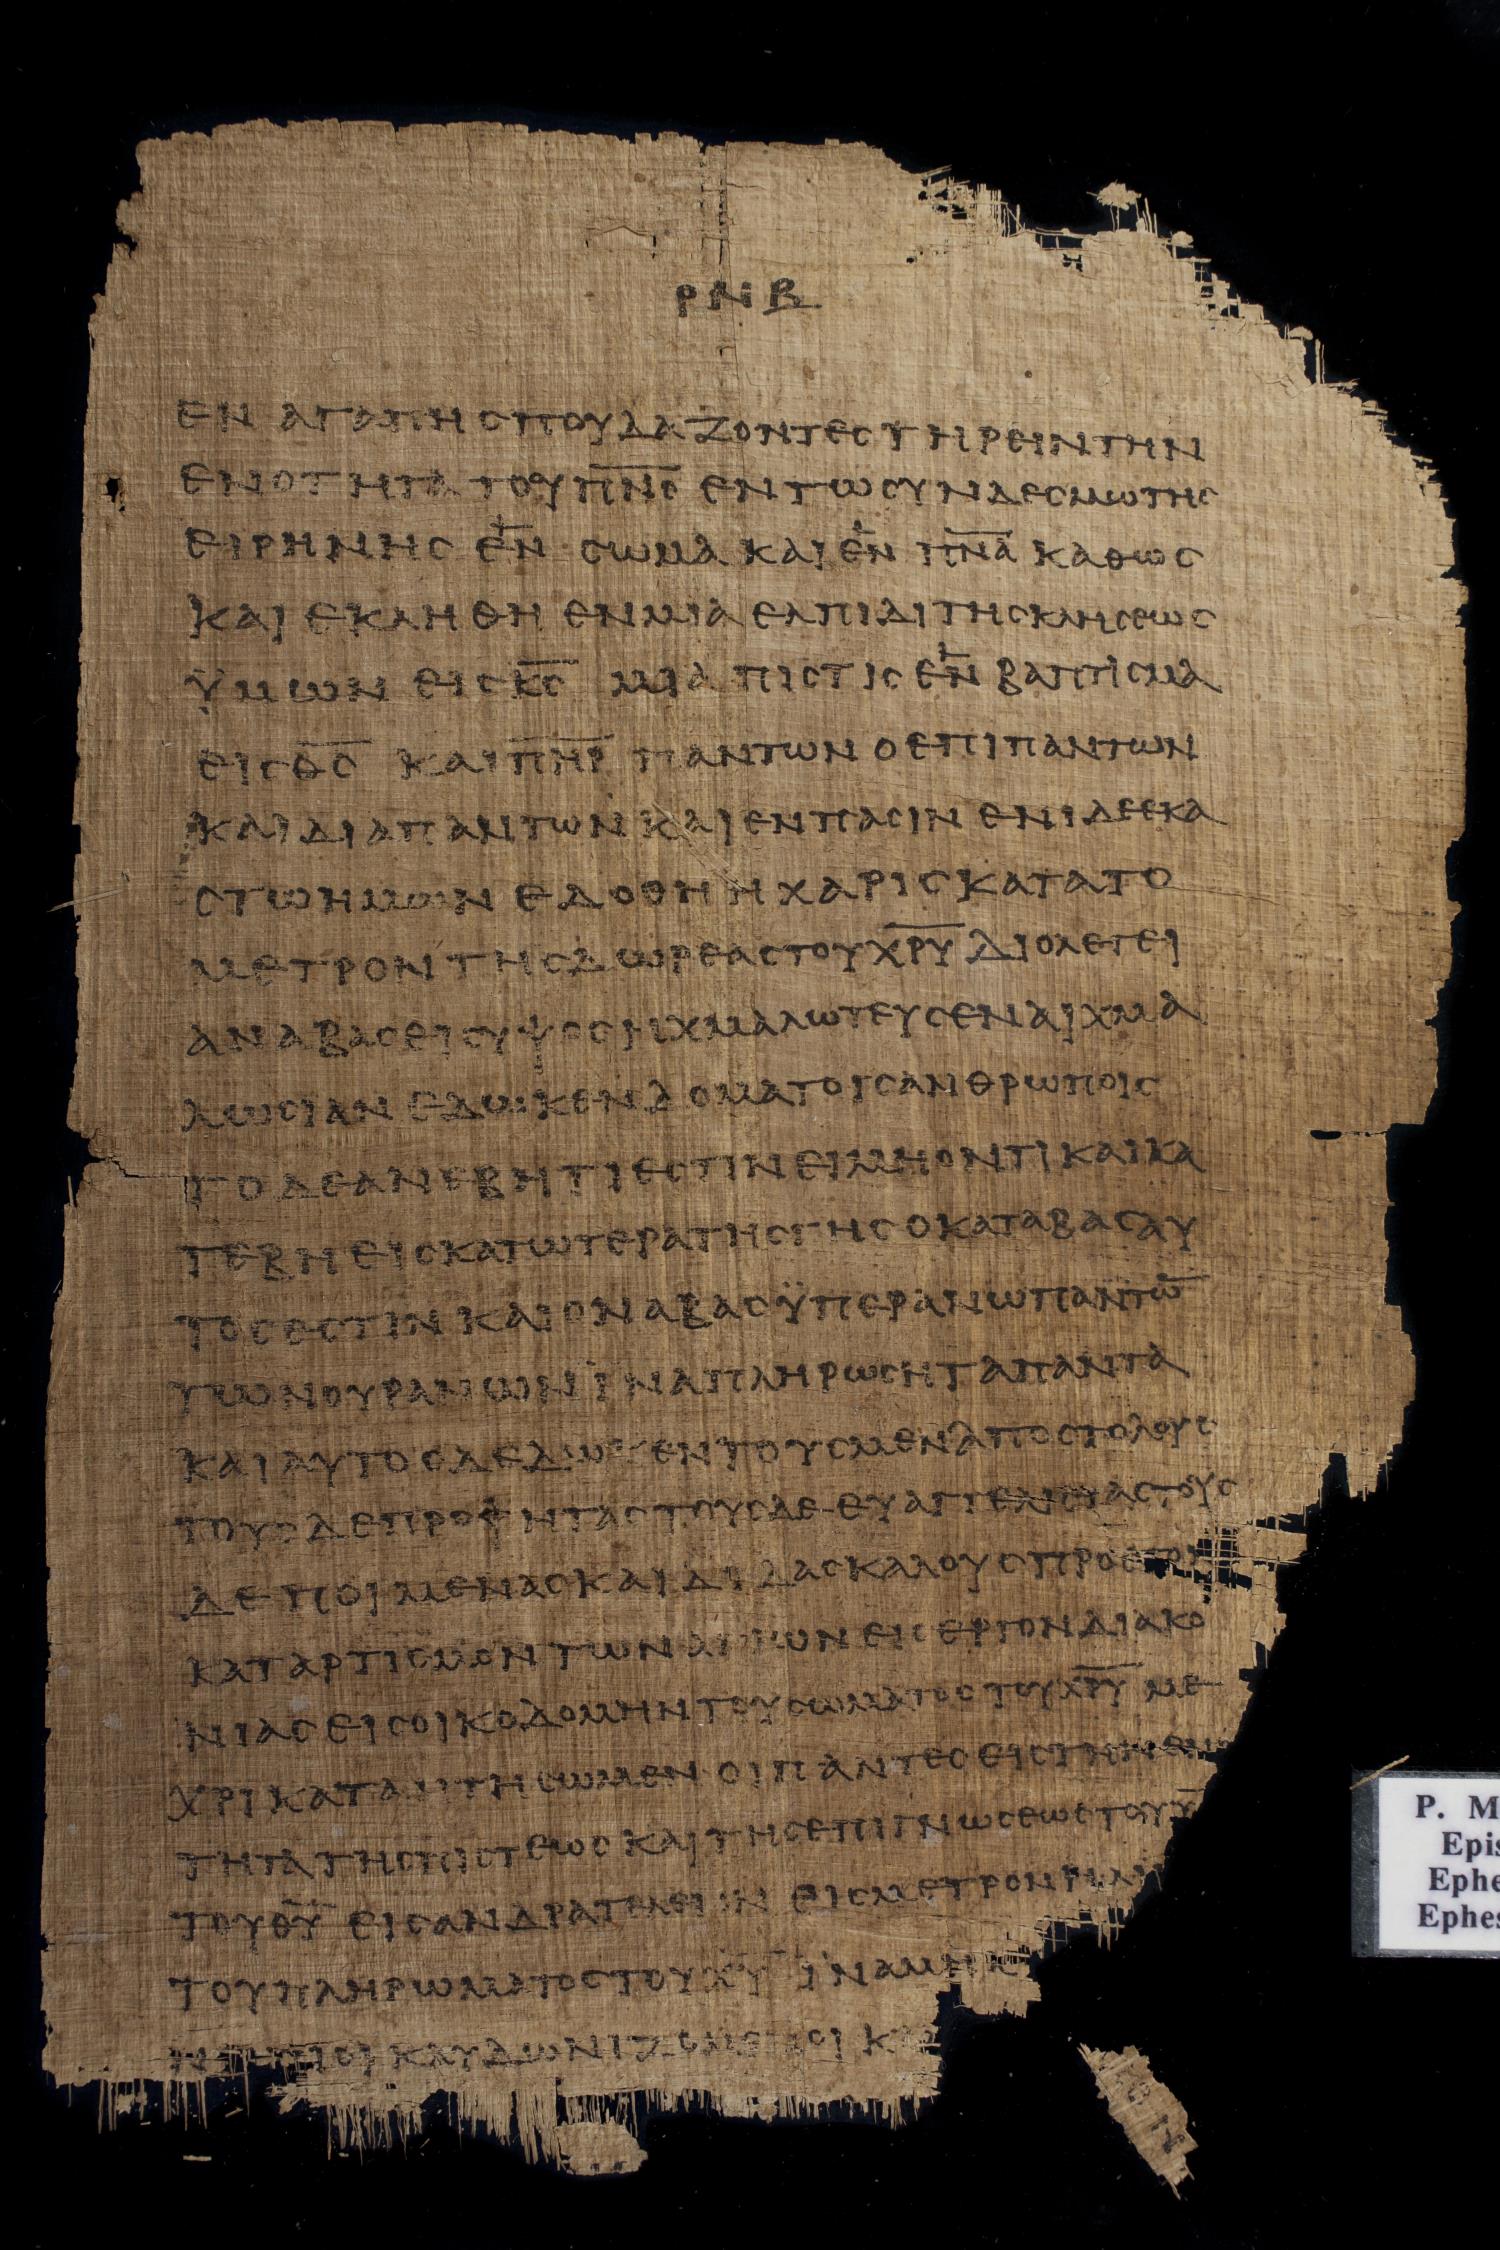 ΡΝΒ
ΕΝ ΑΓΑΠΗ ϹΠΟΥΔΑΖΟΝΤΕϹ ΤΗΡΕΙΝ ΤΗΝ
ΕΝΟΤΗΤΑ ΤΟΥ Π̅Ν̅Ϲ̅ ΕΝ ΤΩ ϹΥΝΔΕϹΜΩ ΤΗϹ
ΕΙΡΗΝΗϹ ΕΝ ϹΩΜΑ ΚΑΙ ΕΝ Π̅Ν̅Α̅ ΚΑΘΩϹ
ΚΑΙ ΕΚΛΗΘΗ ΕΝ ΜΙΑ ΕΛΠΙΔΙ ΤΗϹ ΚΛΗϹΕΩϹ
ΫΜΩΝ ΕΙϹ Κ̅Ϲ̅ ΜΙΑ ΠΙϹΤΙϹ ΕΝ ΒΑΠΤΙϹΜΑ
ΕΙϹ Θ̅Ϲ̅ ΚΑΙ Π̅Η̅Ρ̅ ΠΑΝΤΩΝ Ο ΕΠΙ ΠΑΝΤΩΝ
ΚΑΙ ΔΙΑ ΠΑΝΤΩΝ ΚΑΙ ΕΝ ΠΑϹΙΝ ΕΝΙ ΔΕ ΕΚΑ
ϹΤΩ ΗΜΩΝ ΕΔΟΘΗ Η ΧΑΡΙϹ ΚΑΤΑ ΤΟ
ΜΕΤΡΟΝ ΤΗϹ ΔΩΡΕΑϹ ΤΟΥ Χ̅Ρ̅Υ̅ ΔΙΟ ΛΕΓΕΙ
ΑΝΑΒΑϹ ΕΙϹ ΥΨΟϹ ΗΧΜΑΛΩΤΕΥϹΕΝ ΑΙΧΜΑ
ΛΩϹΙΑΝ ΕΔΩΚΕΝ ΔΟΜΑ ΤΟΙϹ ΑΝΘΡΩΠΟΙϹ
ΤΟ ΔΕ ΑΝΕΒΗ ΤΙ ΕϹΤΙΝ ΕΙ ΜΗ ΟΝΤΙ ΚΑΙ ΚΑ
ΤΕΒΗ ΕΙϹ ΚΑΤΩΤΕΡΑ ΤΗϹ ΓΗϹ Ο ΚΑΤΑΒΑϹ ΑΥ
ΤΟϹ ΕϹΤΙΝ ΚΑΙ Ο ΝΑΒΑϹ ΫΠΕΡΑΝΩ ΠΑΝΤΩ̅
ΤΩΝ ΟΥΡΑΝΩΝ ΪΝΑ ΠΛΗΡΩϹΗ ΤΑ ΠΑΝΤΑ
ΚΑΙ ΑΥΤΟϹ ΔΕΔΩΚΕΝ ΤΟΥϹ ΜΕΝ ΑΠΟϹΤΟΛΟΥϹ
ΤΟΥϹ ΔΕ ΠΡΟΦΗΤΑϹ ΤΟΥϹ ΔΕ ΕΥΑΓΓΕΛΙϹΤΑϹ ΤΟΥϹ
ΔΕ ΠΟΙΜΕΝΑϹ ΚΑΙ ΔΙΔΑϹΚΑΛΟΥϹ ΠΡΟϹ ΤΟΝ
ΚΑΤΑΡΤΙϹΜΟΝ ΤΩΝ ΑΓΙΩΝ ΕΙϹ ΕΡΓΟΝ ΔΙΑΚΟ
ΝΙΑϹ ΕΙϹ ΟΙΚΟΔΟΜΗΝ ΤΟΥ ϹΩΜΑΤΟϹ ΤΟΥ Χ̅Ρ̅Υ̅ ΜΕ
ΧΡΙ ΚΑΤΑΝΤΗϹΩΜΕΝ ΟΙ ΠΑΝΤΕϹ ΕΙϹ ΤΗΝ ΕΝΟ
ΤΗΤΑ ΤΗϹ ΠΙϹΤΕΩϹ ΚΑΙ ΤΗϹ ΕΠΙΓΝΩϹΕΩϹ ΤΟΥ Υ̅
ΤΟΥ Θ̅Υ̅ ΕΙϹ ΑΝΔΡΑ ΤΕΛΕΙΟΝ ΕΙϹ ΜΕΤΡΟΝ
ΤΟΥ ΠΛΗΡΩΜΑΤΟϹ ΤΟΥ Χ̅Υ̅ ΪΝΑ ΜΗΚ
ΝΗΠΙΟΙ ΚΛΥΔΩΝΙΖΟΜΕΝΟΙ Κ
P. M
Epis
Ephe
Ephes